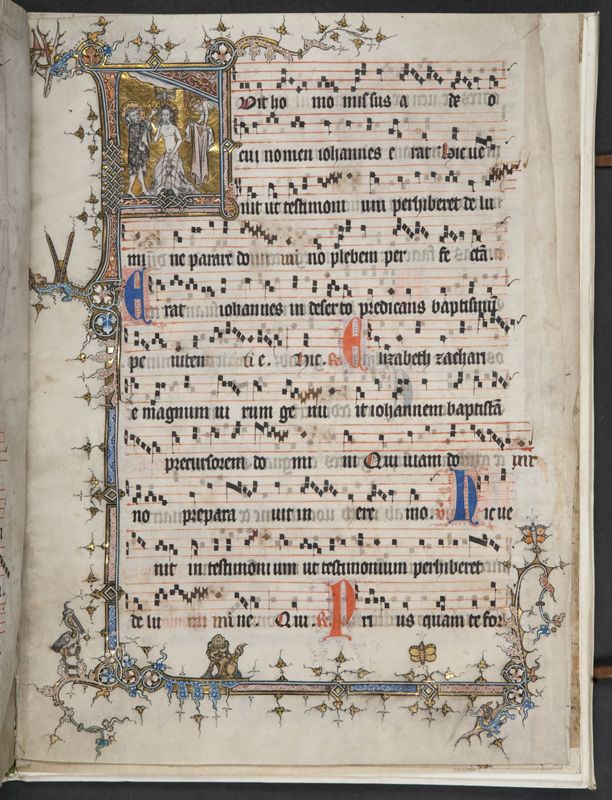 uit ho mo missus a de o
cui nomen iohannes e rat Hic ue
nit ut testimoni um perhiberet de lu
mi ne parare do mi no plebem per fe ctā.
Erat iohannes in deserto predicans baptismū
pe niten ti e. Hic. Elizabeth zachari
e magnum ui rum ge nu it iohannem baptistā
precursorem do mi ni Qui uiam do
no prepara uit in ere mo. Hic ue
nit in testimoni um ut testimonium perhiberet
de lu mi ne. Qui Pri us quam te for